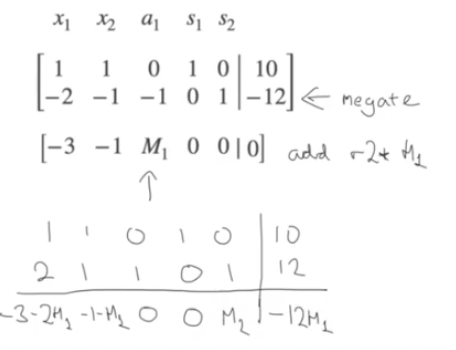 x₁ x₂ a₁ s₁ s₂
[ 1 1 0 1 0 | 10 ]
[ -2 -1 -1 0 1 | -12 ] ← negate
[-3 -1 M₁ 0 0 | 0] add -r2* M₁
↑
1 1 0 1 0 | 10
2 1 1 0 1 | 12
-3-2M₁ -1-M₁ 0 0 M₂ | -12M₁